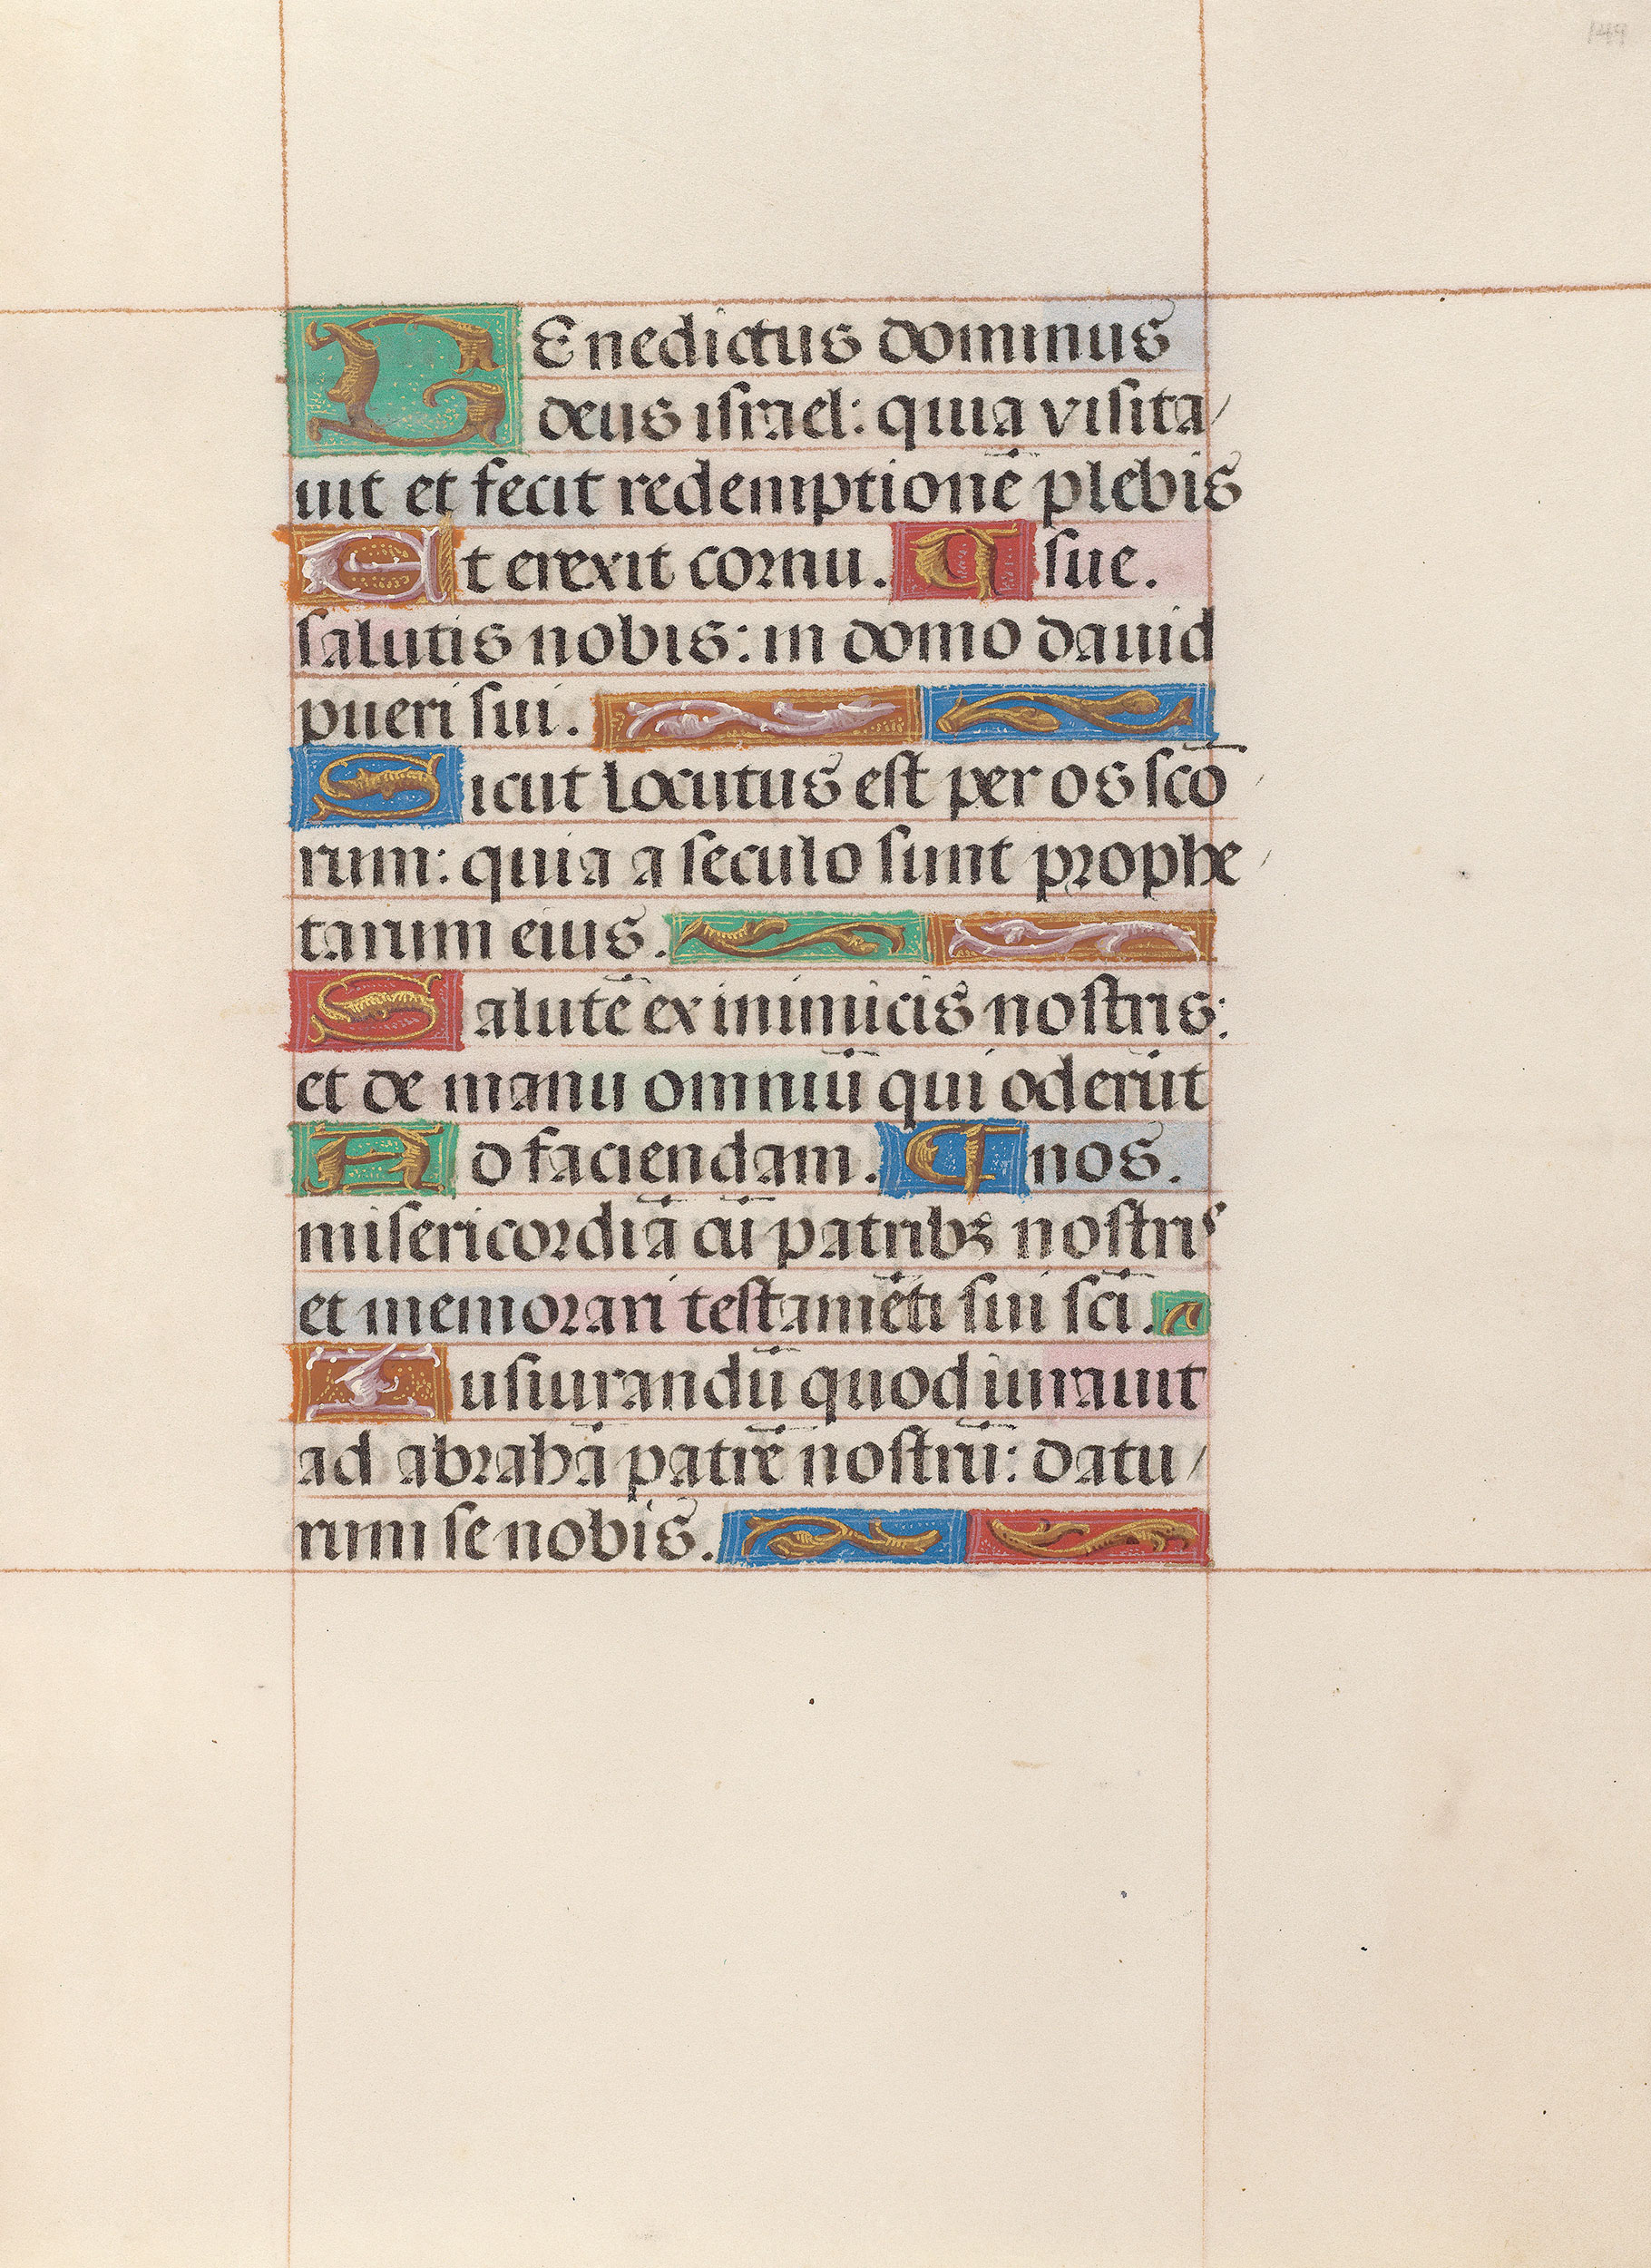 BEnedictus dominus
deus israel: quia visita/
uit et fecit redemptionē plebis
Et erexit cornu. ¶ sue.
salutis nobis: in domo dauid
pueri sui.
Sicut locutus est per os scō/
rum: quia a seculo sunt prophe/
tarum eius.
Salutē ex inimicis nostris:
et de manu omniū qui oderūt
Ad faciendam. ¶ nos.
misericordiā cū patribꝫ nostris
et memorari testamēti sui scī.
Iusiurandū quod iurauit
ad abrahā patrē nostrū: datu/
rum se nobis.